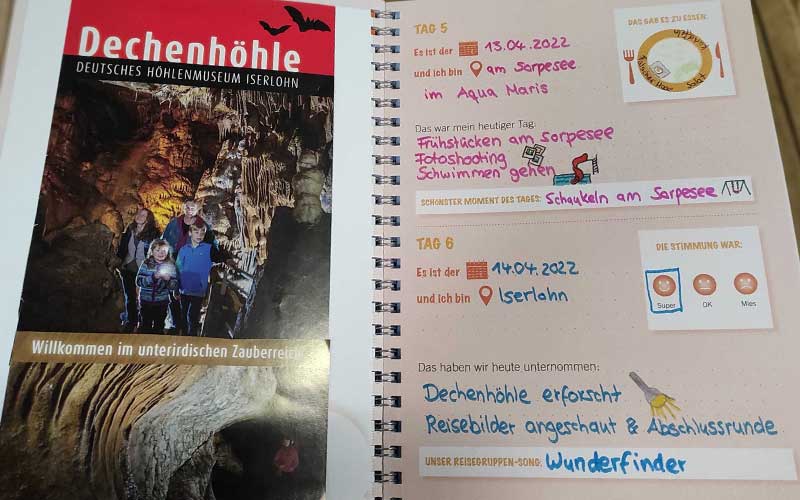 Dechenhöhle
DEUTSCHES HÖHLENMUSEUM ISERLOHN
Willkommen im unterirdischen Zauberreich
TAG 5
Es ist der 13.04.2022
und ich bin am Sorpesee
im Aqua Maris
DAS GAB ES ZU ESSEN:
Das war mein heutiger Tag:
Frühstücken am Sorpesee
Fotoshooting
Schwimmen gehen
SCHÖNSTER MOMENT DES TAGES: Schaukeln am Sorpesee
TAG 6
Es ist der 14.04.2022
und ich bin Iserlohn
DIE STIMMUNG WAR:
Super OK Mies
Das haben wir heute unternommen:
Dechenhöhle erforscht
Reisebilder angeschaut & Abschlussrunde
UNSER REISEGRUPPEN-SONG: Wunderfinder